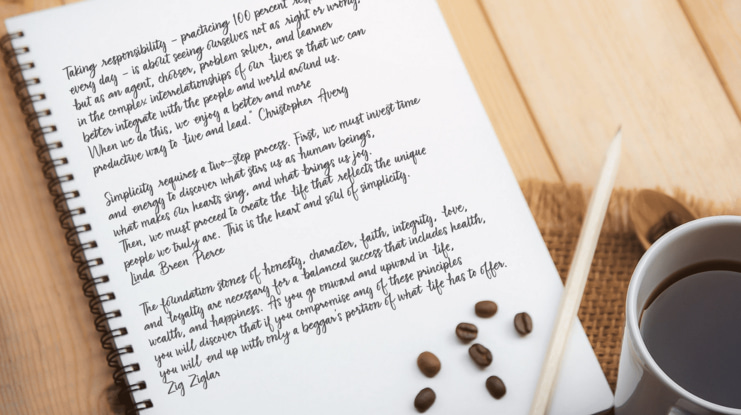 Taking responsibility - practicing 100 percent
every day - is about seeing ourselves not as right or wrong,
but as an agent, chooser, problem solver, and learner
in the complex interrelationships of our lives so that we can
better integrate with the people and world around us.
When we do this, we enjoy a better and more
productive way to live and lead." Christopher Avery
Simplicity requires a two-step process. First, we must invest time
and energy to discover what stirs us as human beings,
what makes our hearts sing, and what brings us joy.
Then, we must proceed to create the life that reflects the unique
people we truly are. This is the heart and soul of simplicity.
Linda Breen Pierce
The foundation stones of honesty, character, faith, integrity, love,
and loyalty are necessary for a balanced success that includes health,
wealth, and happiness. As you go onward and upward in life,
you will discover that if you compromise any of these principles
you will end up with only a beggar's portion of what life has to offer.
Zig Ziglar